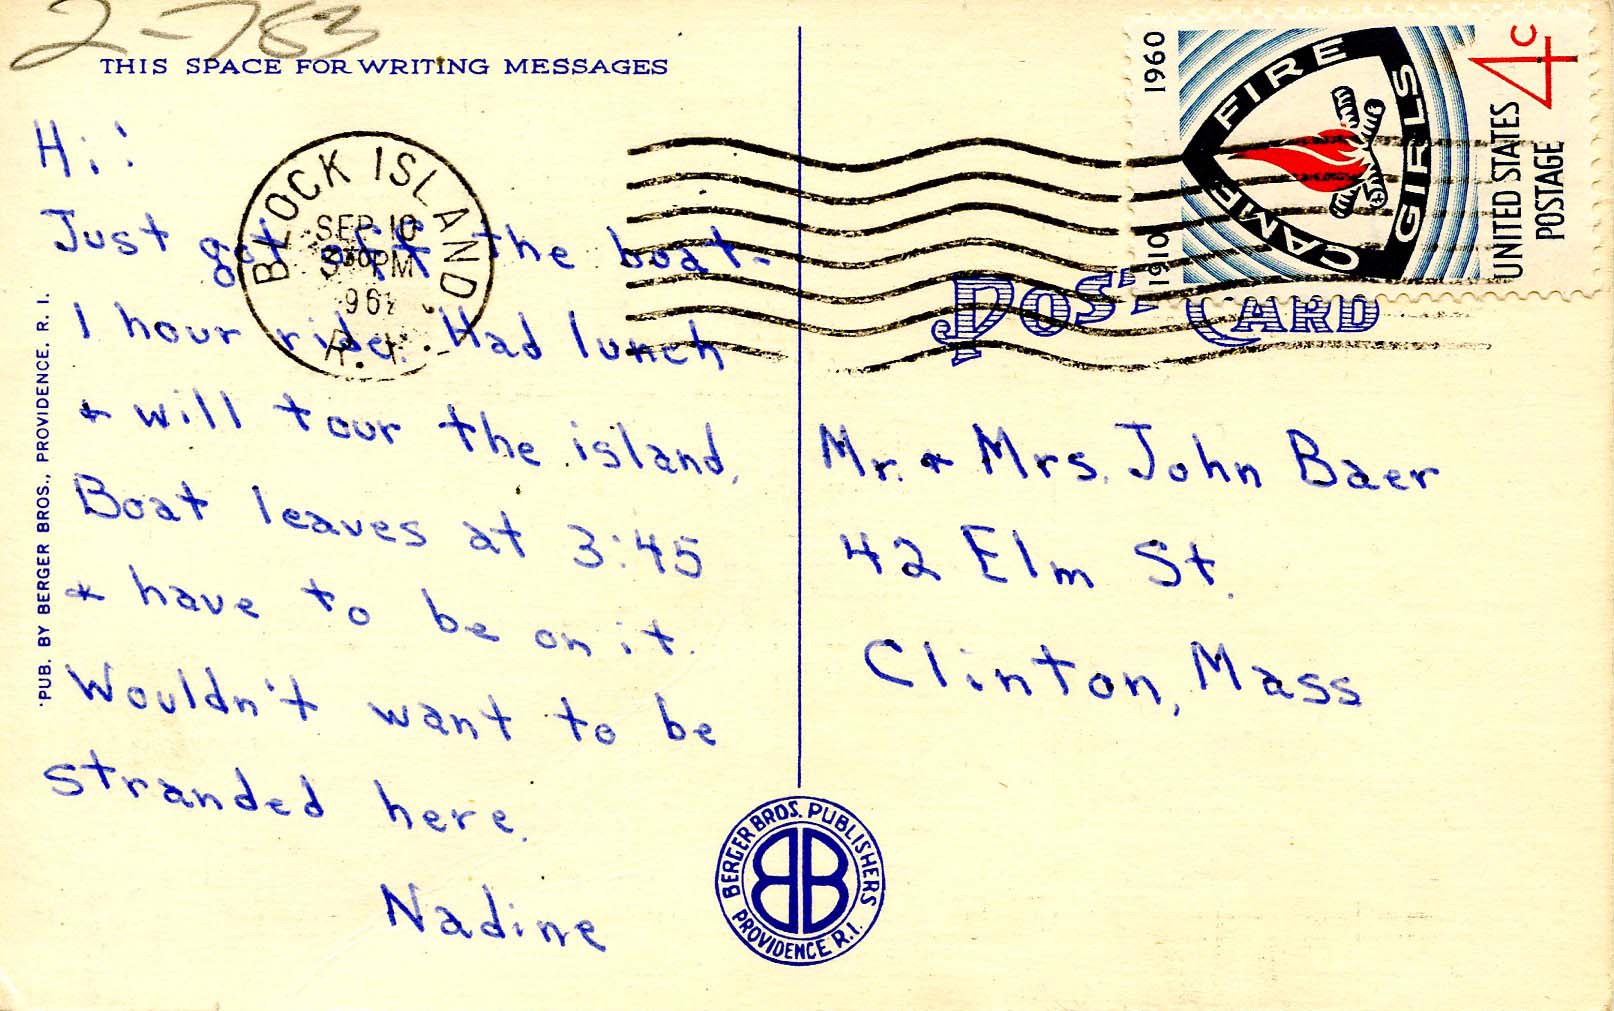 2-753
THIS SPACE FOR WRITING MESSAGES
Hi!
Just got off the boat-
1 hour ride. Had lunch
+ will tour the island.
Boat leaves at 3:45
+ have to be on it.
Wouldn't want to be
stranded here.
Nadine
PUB. BY BERGER BROS., PROVIDENCE, R. I.
BLOCK ISLAND
SEP 10
PM
R. I.
BERGER BROS. PUBLISHERS
BB
PROVIDENCE, R.I.
1910 1960
CAMP FIRE GIRLS
UNITED STATES
POSTAGE
4c
POST CARD
Mr. + Mrs. John Baer
42 Elm St.
Clinton, Mass